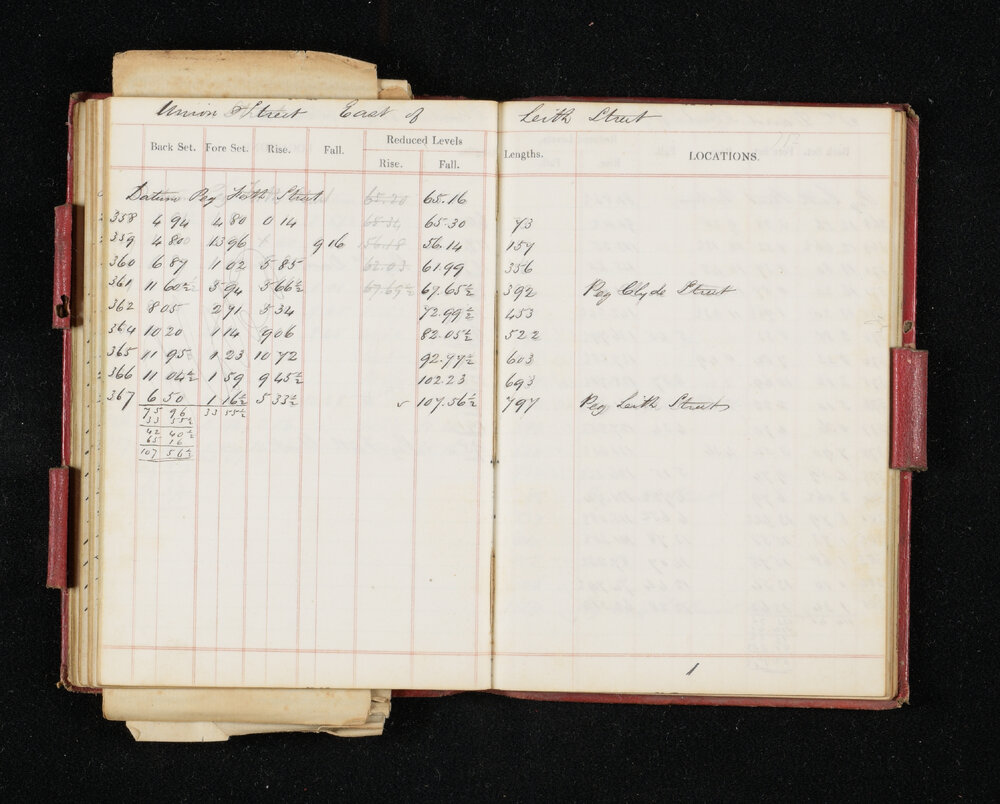 Union Street East of Leith Street
Back Set. Fore Set. Rise. Fall. Reduced Levels Lengths. LOCATIONS.
Rise. Fall.
Datum Peg Forth Street 65.20 65.16
358 4 94 4 80 0 14 65.34 65.30 73
359 4 80 13 96 9 16 56.18 56.14 157
360 6 87 1 02 5 85 62.03 61.99 356
361 11 60½ 5 94 5 66½ 67.69½ 67.65½ 392 Peg Clyde Street
362 8 05 2 71 5 34 72.99½ 453
364 10 20 1 14 9 06 82.05½ 522
365 11 95 1 23 10 72 92.77½ 603
366 11 04½ 1 59 9 45½ 102.23 693
367 6 50 1 16½ 5 33½ 107.56½ 797 Peg Leith Street
75 96 33 55½
33 55½
42 40½
65 16
107 56½